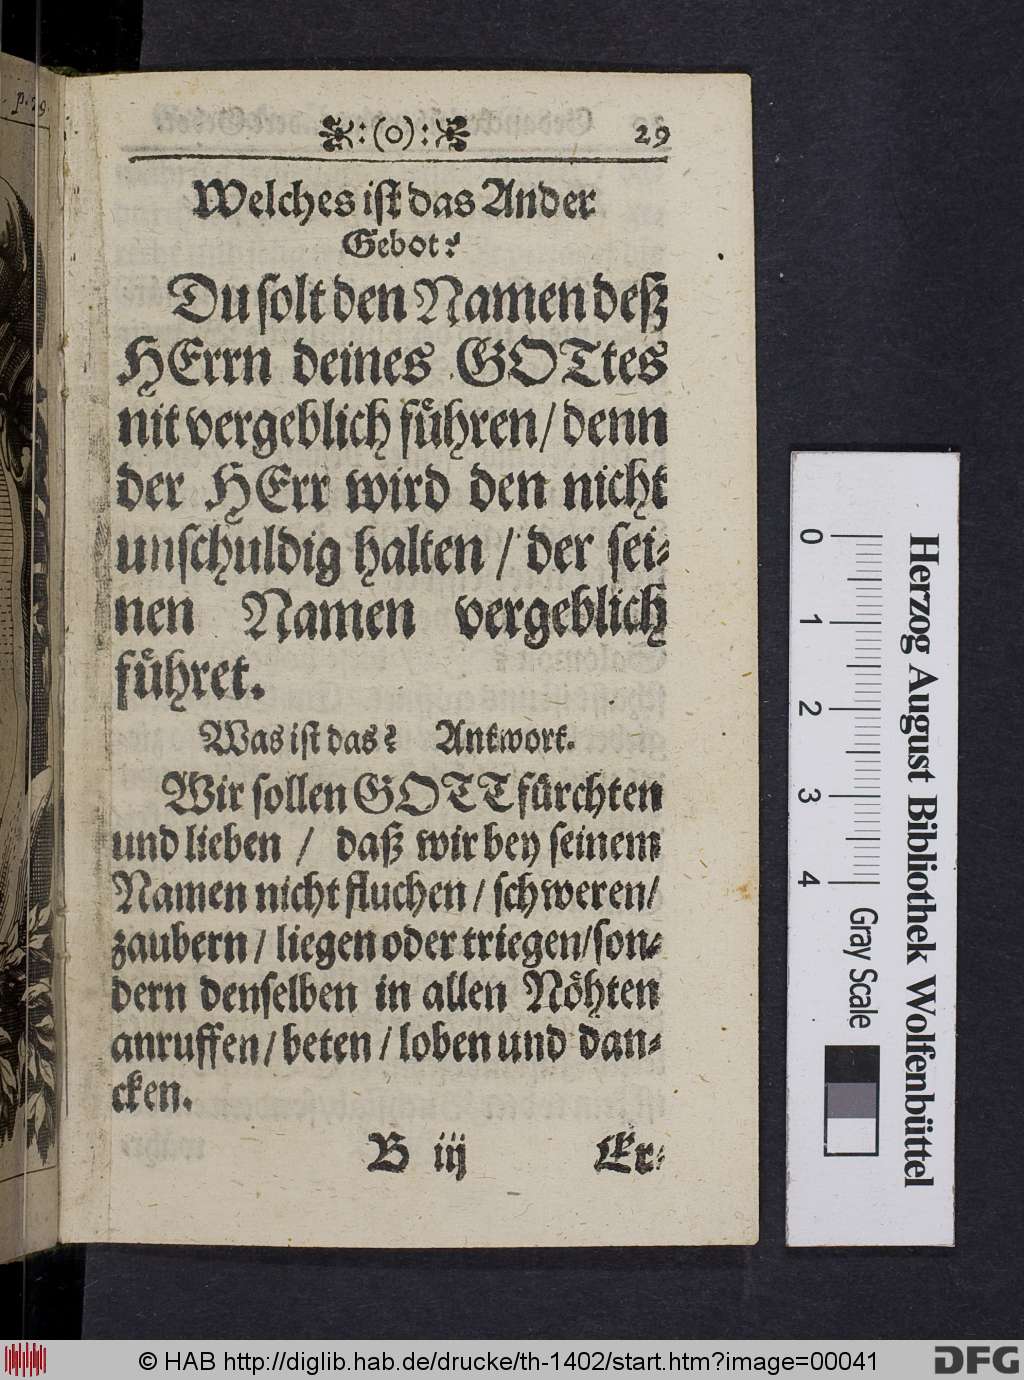 p. 29
:(o): 29
Welches ist das Ander
Gebot?
Du solt den Namen deß
HErrn deines GOTtes
nit vergeblich fuͤhren/ denn
der HErr wird den nicht
unschuldig halten / der sei-
nen Namen vergeblich
fuͤhret.
Was ist das? Antwort.
Wir sollen GOTT fürchten
und lieben / daß wir bey seinem
Namen nicht fluchen / schweren/
zaubern / liegen oder triegen/son-
dern denselben in allen Nöhten
anruffen / beten / loben und dan-
cken.
B iij Er-
Herzog August Bibliothek Wolfenbüttel
0 1 2 3 4 Gray Scale
© HAB http://diglib.hab.de/drucke/th-1402/start.htm?image=00041 DFG